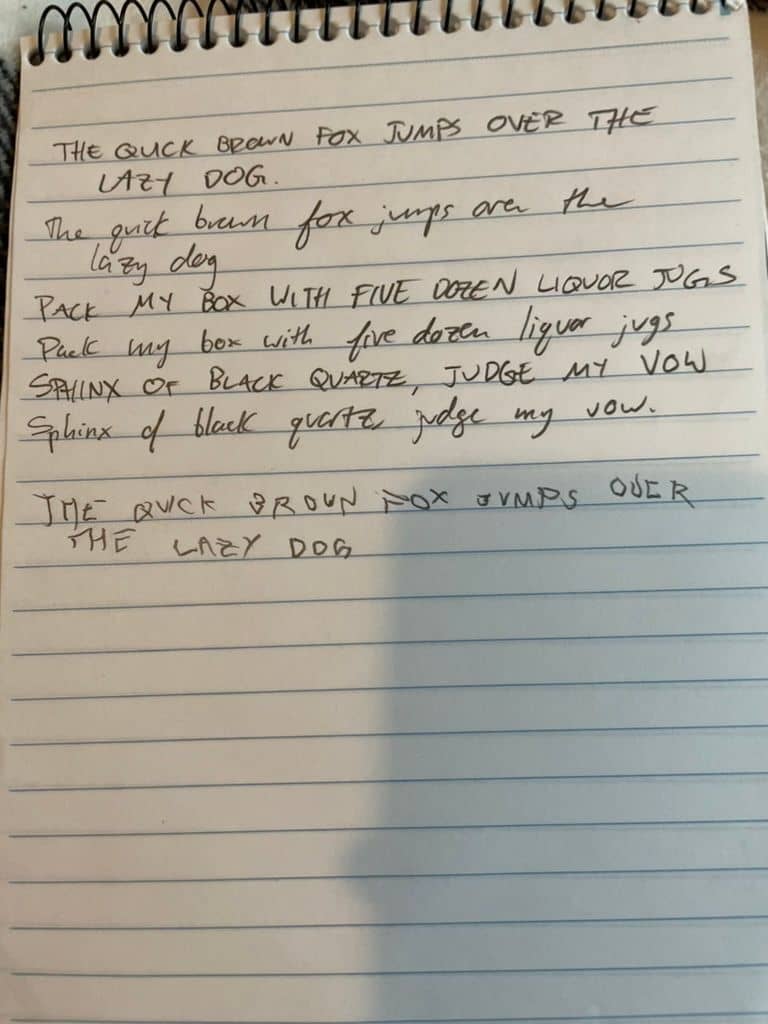 THE QUICK BROWN FOX JUMPS OVER THE
LAZY DOG.
The quick brown fox jumps over the
lazy dog
PACK MY BOX WITH FIVE DOZEN LIQUOR JUGS
Pack my box with five dozen liquor jugs
SPHINX OF BLACK QUARTZ, JUDGE MY VOW
Sphinx of black quartz judge my vow.
THE QUICK BROWN FOX JUMPS OVER
THE LAZY DOG